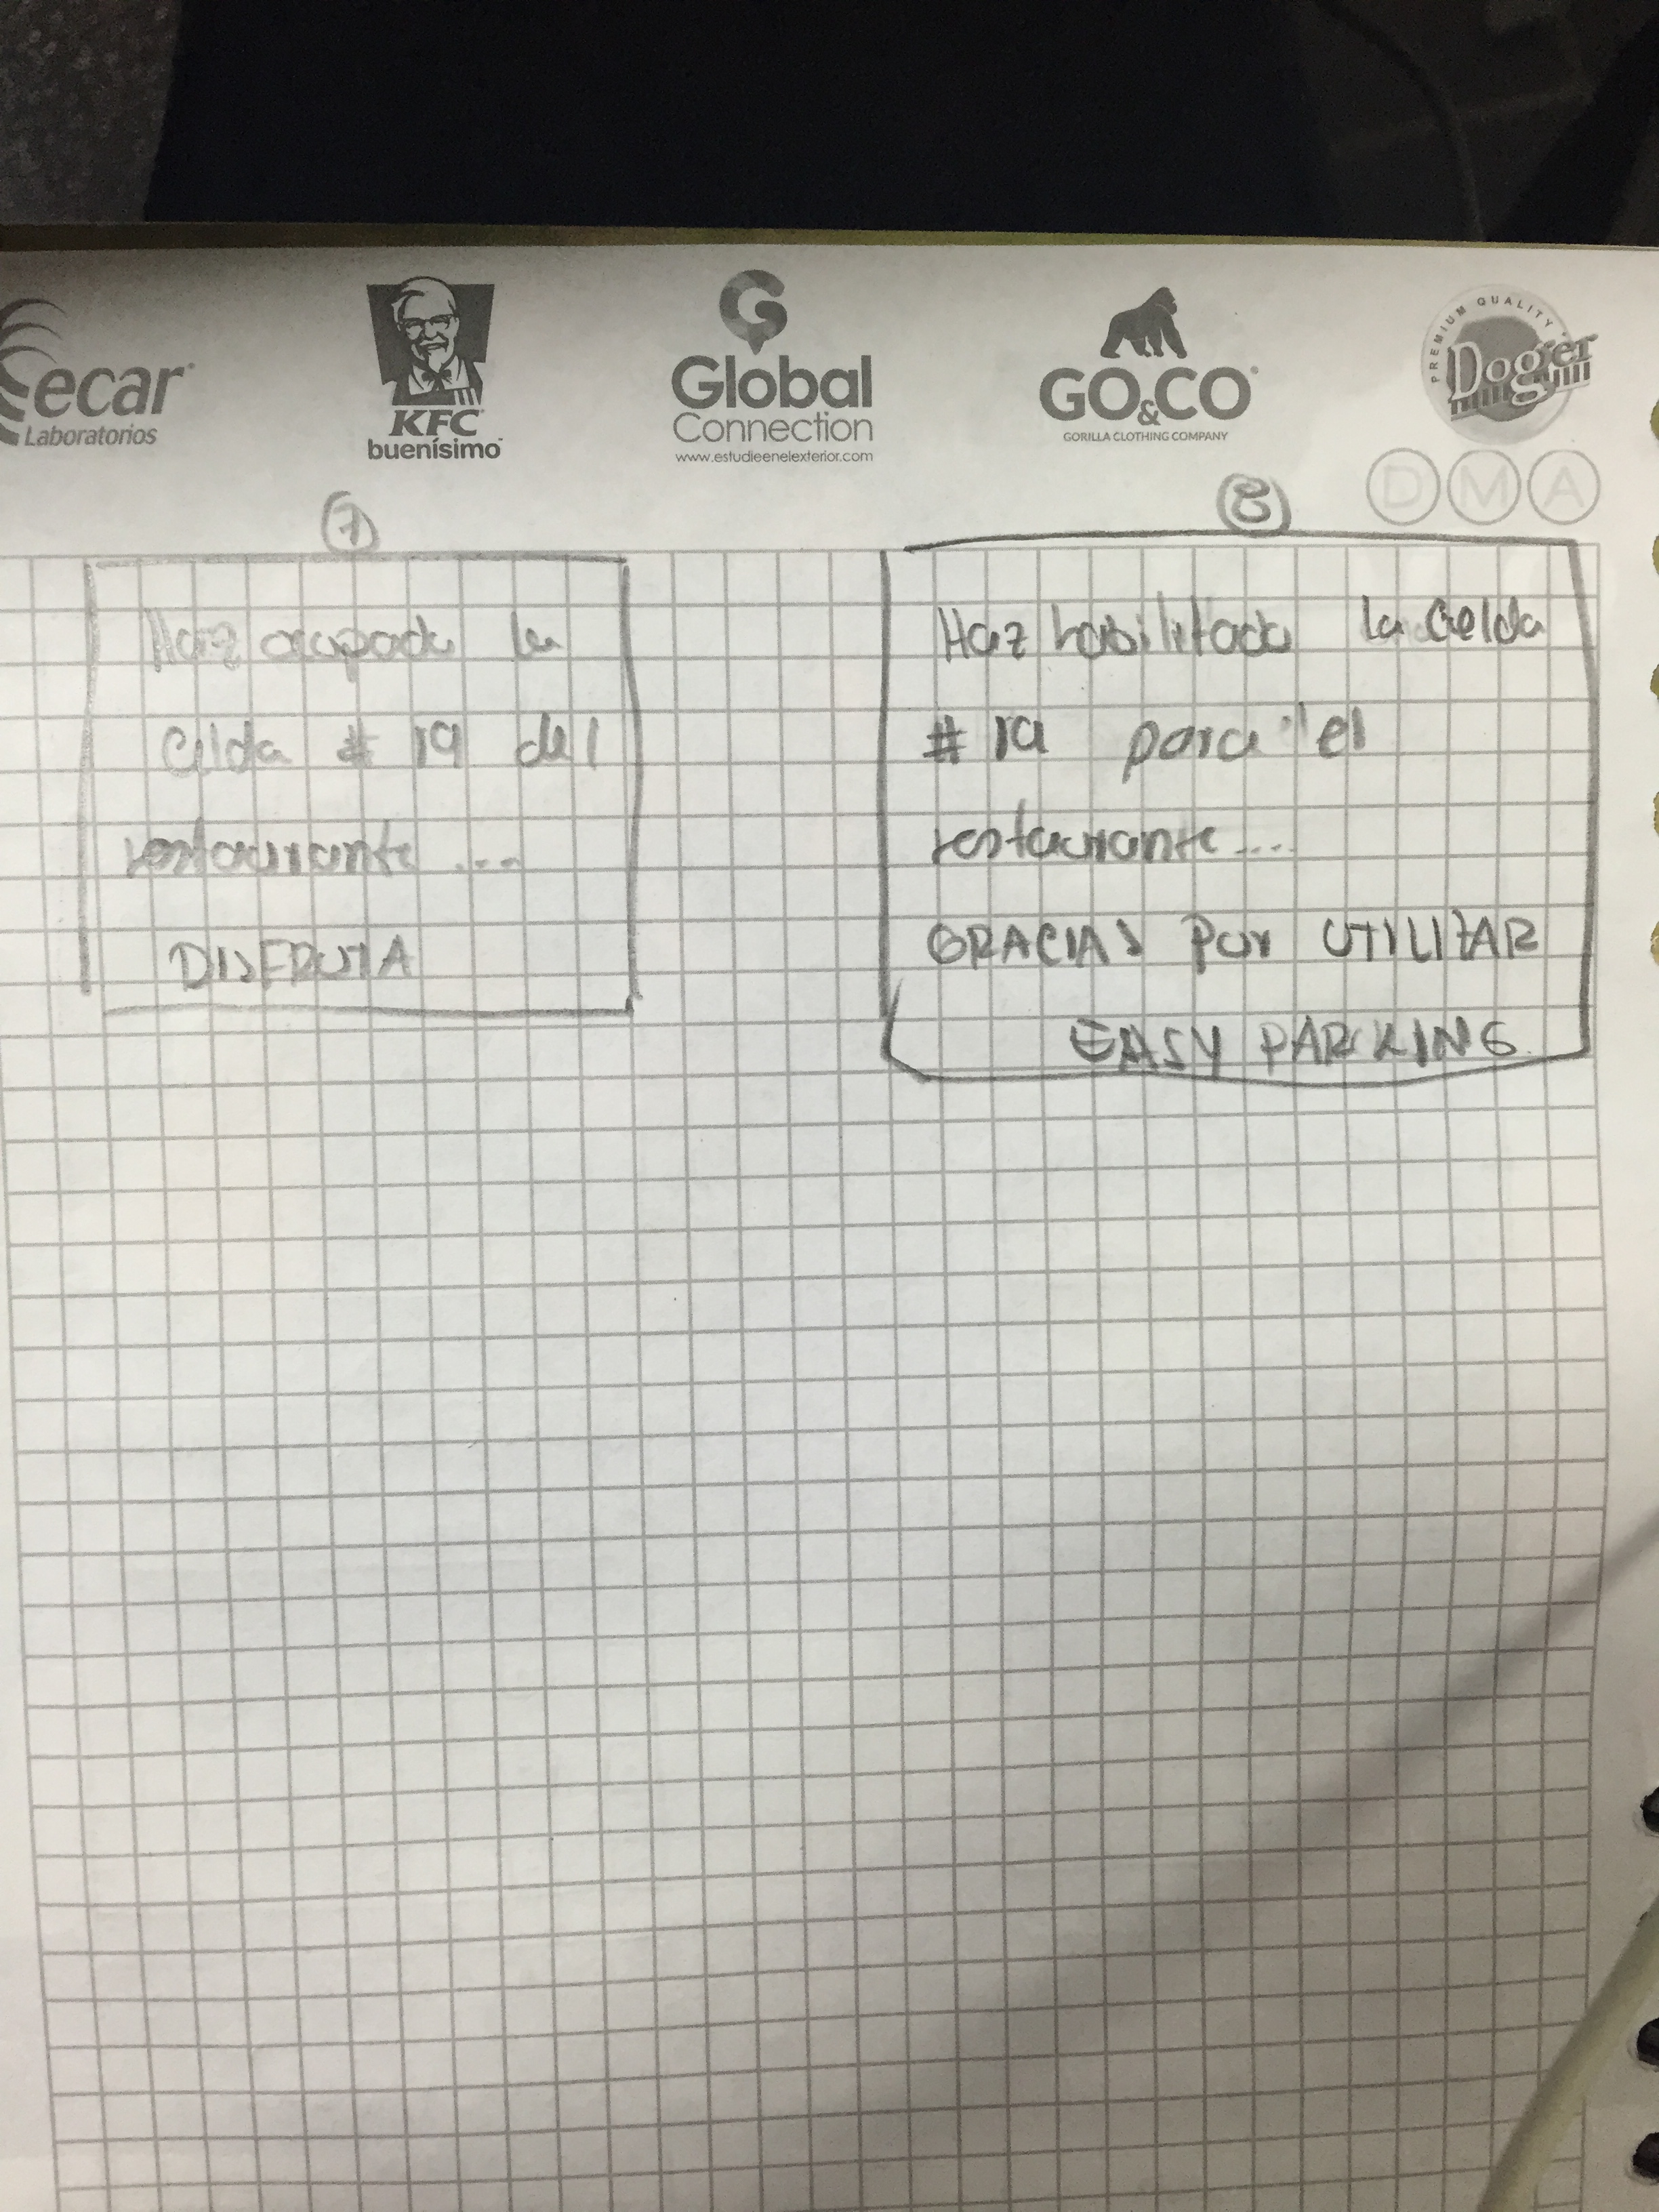 ecar
Laboratorios
KFC
buenísimo
G
Global
Connection
www.estudieenelexterior.com
GO&CO
GORILLA CLOTHING COMPANY
PREMIUM QUALITY
Dogger
D M A
7
Haz ocupado la
Celda # 19 del
restaurante ...
DISFRUTA
8
Haz habilitado la Celda
# 19 para el
restaurante ....
GRACIAS Por UTILIZAR
EASY PARKING